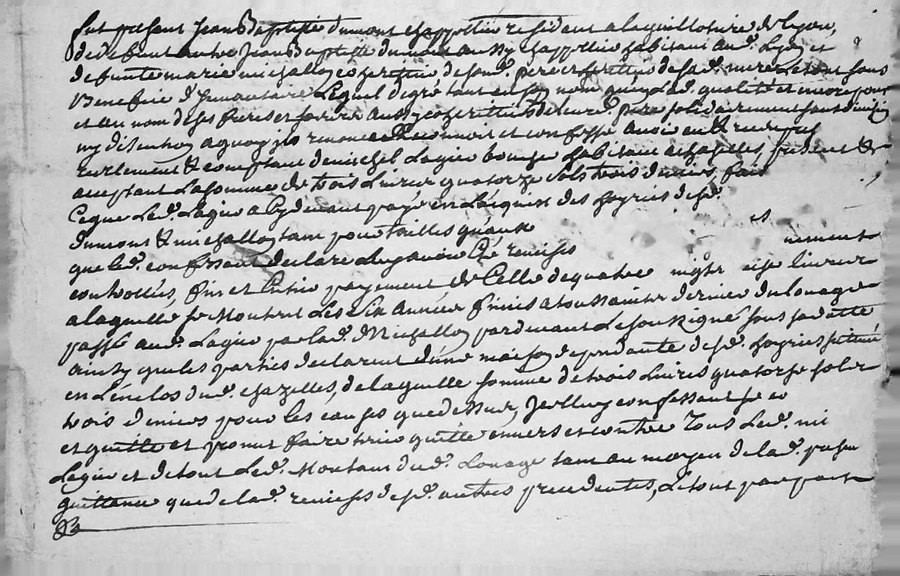 fut present Jean Baptiste dumont chappellier resident a la guillotiere de lyon,
de deffunt autre Jean Baptiste dumont aussy chappellier habitant aud. Lyon et
defunte marie michallon coheritier de son d. pere et heritier de sad. mere, le tout sous
Benefice d'Inventaire Lequel de gré tant en son nom qualité et encore pour
et au nom de ses freres et soeurs aussy coheritiers de leurd. pere solidairement sans division
ny discution a quoy il renonce Reconnoit et confesse avoir eu & receu
reellement & comptant de michel Lagier bourgeois habitant a chazelles, present &
acceptant La somme de trois Livres quatorze sols trois deniers, fait
Ce que Led. Lagier a cy devant payé en L'acquit des hoyries desd.
dumont & michallon tant pour tailles
que led. confessant declare Luy avoir été remises
controllées, fin et Entier payement de Celle de quatre vingt livres
a laquelle se Montent Les six Années finies a toussaints dernier du Louage
passé aud. Lagier par lad. Michallon pardevant Le soussigné sous sa datte
ainsy que les parties declarent d'une maison dependante desd. hoyries scittuée
en L'enclos dud. chazelles, de laquelle somme de trois Livres quatorze sols
trois deniers pour les causes que dessus, Icelluy confessant se
et quitte et promet faire tenir quitte envers et contre Tous Led.
Lagier et de tout Led. Montant dud. Louage tant au moyen de lad. presente
quittance que de lad. remises desd. autres precedentes, Le tout
&a